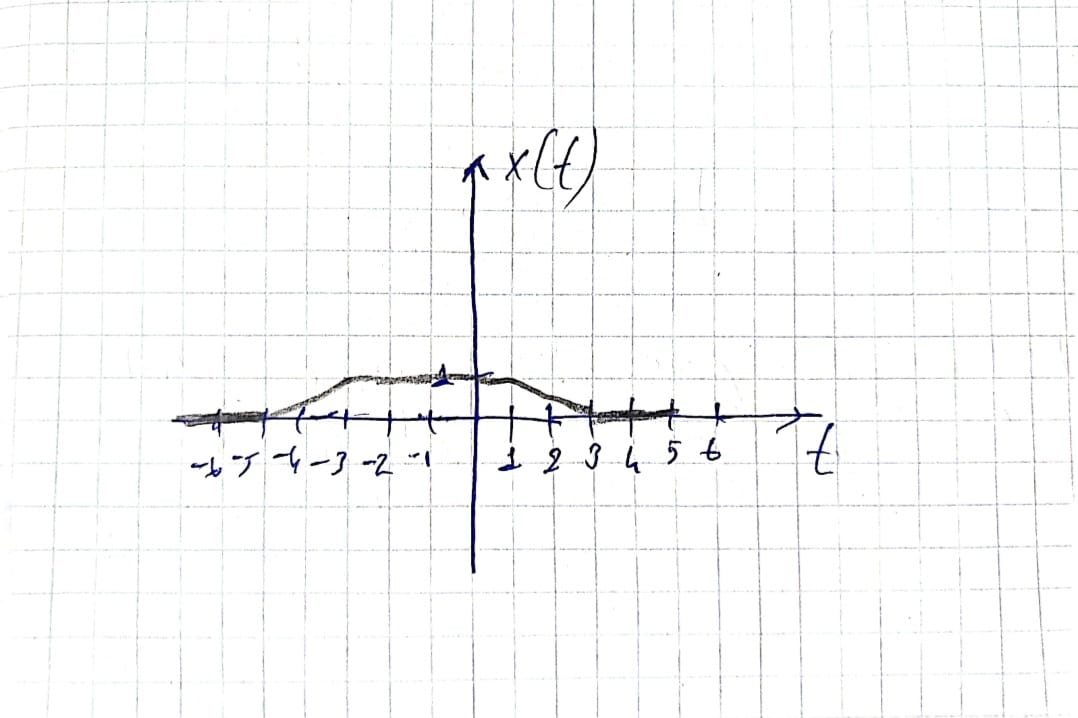 x(t)
1
-6 -5 -4 -3 -2 -1 1 2 3 4 5 6 t